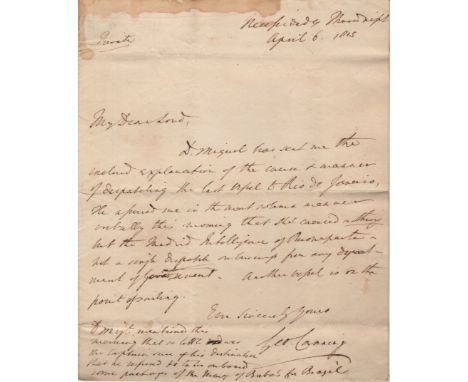 Private
April 6. 1815
My Dear Lord,
D. Miguel has sent me the
inclosed explanation of the cause & manner
of dispatching the last vessel to Rio de Janeiro.
He assured me in the most solemn manner
verbally this morning that she carried nothing
but the Madrid Intelligence of Buonaparte -
not a single dispatch or message from any depart-
ment of Government - Another vessel is on the
point of sailing.
Ever Sincerely Yours
Geo Canning
D. Migl. mentioned this
morning that so little was
the Captain sure of his destination
that he refused to take on board
some packages of the for Brazil